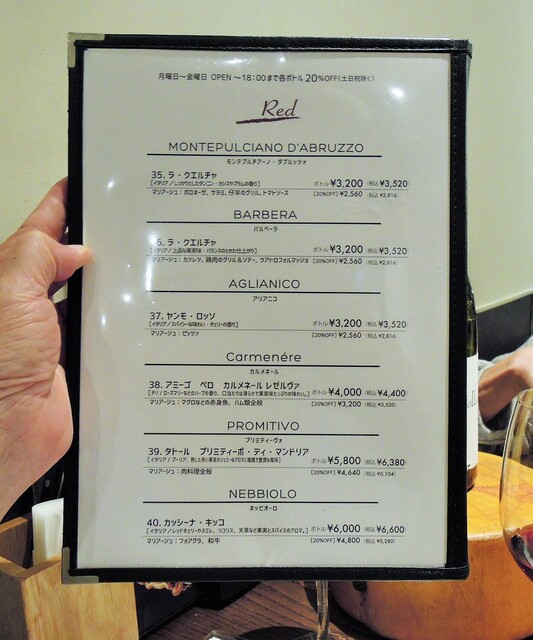 月曜日～金曜日 OPEN～18:00まで各ボトル 20%OFF(土日祝除く)
Red
MONTEPULCIANO D'ABRUZZO
モンテプルチアーノ・ダブルッツォ
35. ラ・クエルチャ ボトル ¥3,200 (税込 ¥3,520)
[イタリア／しっかりとしたタンニン・カシスやプラムの香り]
マリアージュ：ボロネーゼ、サラミ、仔羊のグリル、トマトソース [20%OFF] ¥2,560 (税込 ¥2,816)
BARBERA
バルベーラ
6. ラ・クエルチャ ボトル ¥3,200 (税込 ¥3,520)
[イタリア／上品な果実味・バランスのとれた仕上がり]
マリアージュ：カツレツ、鶏肉のグリル＆ソテー、クアトロフォルマッジョ [20%OFF] ¥2,560 (税込 ¥2,816)
AGLIANICO
アリアニコ
37. ヤンモ・ロッソ ボトル ¥3,200 (税込 ¥3,520)
[イタリア／スパイシーな味わい・チェリーの香り]
マリアージュ：ピッツァ [20%OFF] ¥2,560 (税込 ¥2,816)
Carmenére
カルメネール
38. アミーゴ ペロ カルメネール レゼルヴァ ボトル ¥4,000 (税込 ¥4,400)
[チリ／ローズマリーなどのハーブの香り、口当たりは滑らかで果実味たっぷりの味わい。]
マリアージュ：マグロなどの赤身魚、ハム類全般 [20%OFF] ¥3,200 (税込 ¥3,520)
PROMITIVO
プリミティーヴォ
39. タトール プリミティーボ・ディ・マンドリア ボトル ¥5,800 (税込 ¥6,380)
[イタリア／プーリア、熟した赤い果実のジャミー＆アロマに複雑で豊潤な風味]
マリアージュ：肉料理全般 [20%OFF] ¥4,640 (税込 ¥5,104)
NEBBIOLO
ネッビオーロ
40. カッシーナ・キッコ ボトル ¥6,000 (税込 ¥6,600)
[イタリア／レッドチェリーやスミレ、リコリス、天草など果実とスパイスのアロマ。]
マリアージュ：フォアグラ、和牛 [20%OFF] ¥4,800 (税込 ¥5,280)